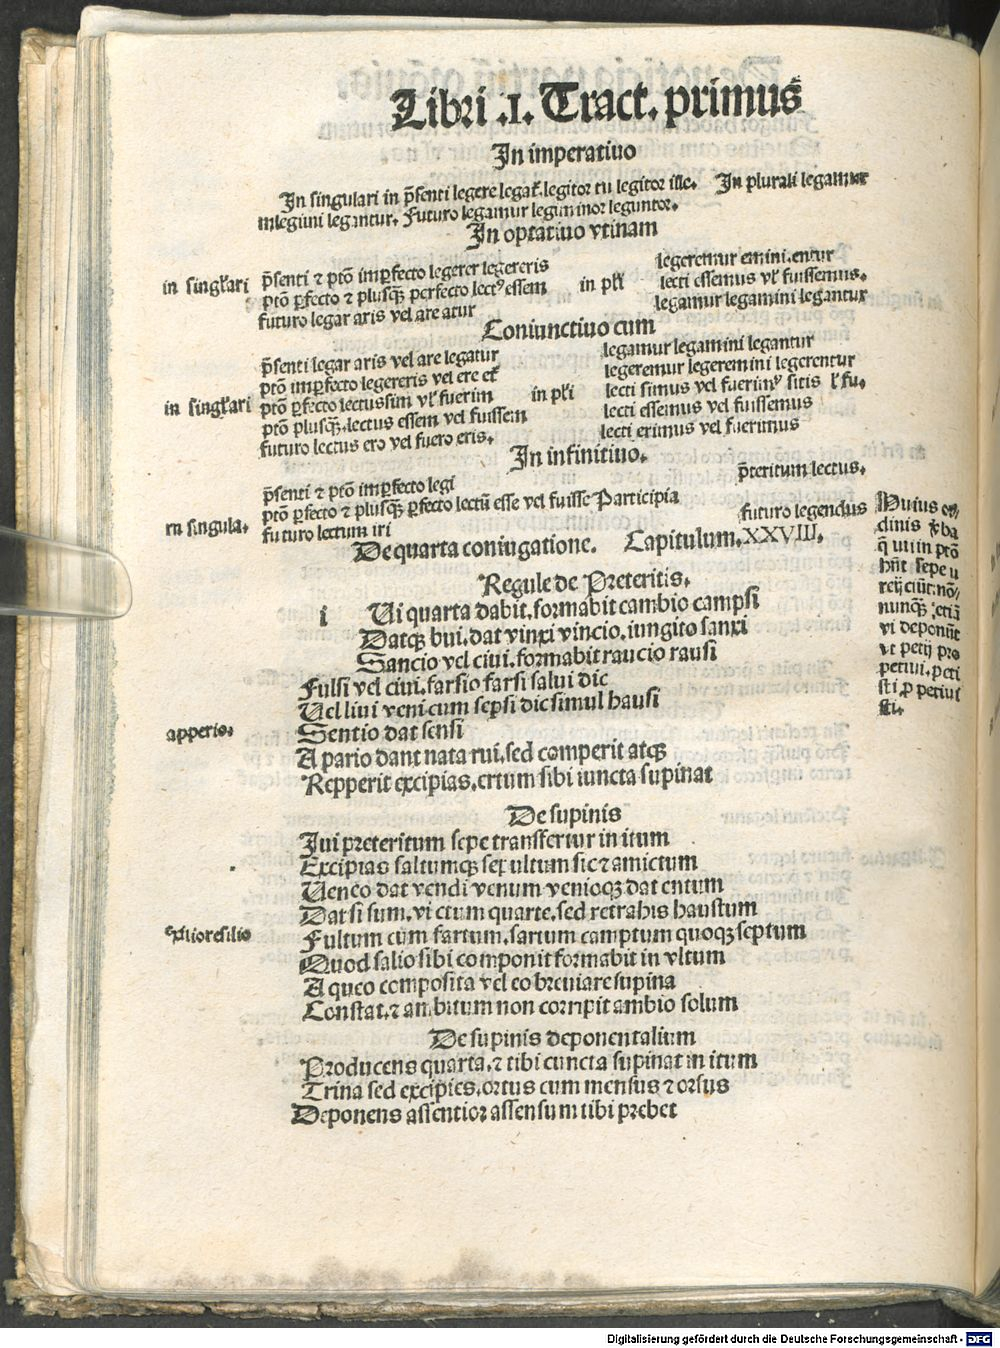 Libri .I. Tract. primus
In imperatiuo
In singulari in p̄senti legere legat̄. legitor tu legitor ille. In plurali legamur
mlegimi legantur. Futuro legamur legiminor leguntor.
In optatiuo vtinam
in singl̄ari
p̄senti ⁊ pt̄o imp̱fecto legerer legereris
pt̄o p̱fecto ⁊ plusqꝫ perfecto lectꝰ essem
futuro legar aris vel are atur
in pl̄i
legeremur emini. entur
lecti essemus vl̄ fuissemus.
legamur legamini legantur
Coniunctiuo cum
in singl̄ari
p̄senti legar aris vel are legatur
pt̄o imp̱fecto legereris vel ere et̄
pt̄o p̱fecto lectus sim vl̄ fuerim
pt̄o plusqꝫ. lectus essem vel fuissem
futuro lectus ero vel fuero eris.
in pl̄i
legamur legamini legantur
legeremur legeremini legerentur
lecti simus vel fuerimꝰ sitis l̄ fu.
lecti essemus vel fuissemus
lecti erimus vel fuerimus
In infinitiuo.
rn singula.
p̄senti ⁊ pt̄o imp̱fecto legi
pt̄o p̱fecto ⁊ plusqꝫ p̱fecto lectū esse vel fuisse Participia
futuro lectum iri
p̄teritum lectus.
futuro legendus
De quarta coniugatione. Capitulum. XXVIII.
Regule de Preteritis.
i Ui quarta dabit. formabit cambio campsi
Datqꝫ bui. dat vinxi vincio. iungito sanxi
Sancio vel ciui. formabit raucio rausi
Fulsi vel ciui. farsio farsi salui dic
Uel liui veni cum sepsi dic simul hausi
apperio.
Sentio dat sensi
A pario dant nata rui. sed comperit atqꝫ
Repperit excipias. ertum sibi iuncta supinat
Huius or
dinis
q̄ ui in pt̄o
hn̄t sepe u
nunqꝫ
vi deponūt
vt petij pro
petiui. peti
sti p̱ petiui
sti.
De supinis
Iui preteritum sepe transfertur in itum
Excipias saltumqꝫ sepultum sic ⁊ amictum
Ueneo dat vendi venum venioqꝫ dat entum
Dat si sum. vi ctum quarte. sed retrahis haustum
Fultum cum fartum. sartum camptum quoqꝫ septum
Quod salio sibi componit formabit in vltum
A queo composita vel eo breuiare supina
Constat. ⁊ ambitum non corripit ambio solum
De supinis deponentalium
Producens quarta. ⁊ tibi cuncta supinat in itum
Trina sed excipies. ortus cum mensus ⁊ orsus
Deponens assentior assensum tibi prebet
Digitalisierung gefördert durch die Deutsche Forschungsgemeinschaft - DFG